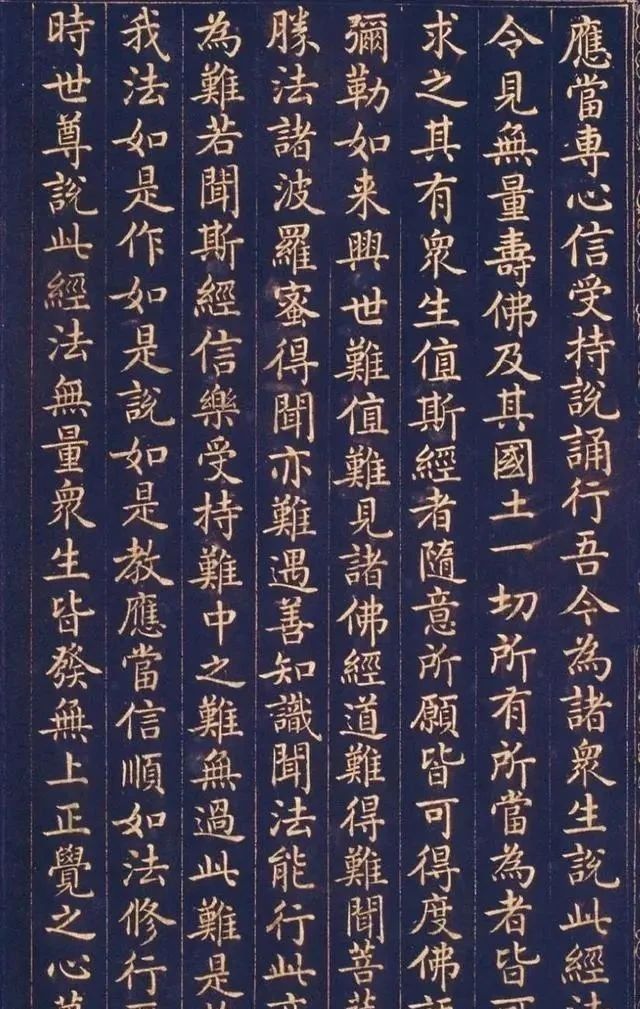 應當專心信受持説誦行吾今為諸衆生説此經法
令見無量壽佛及其國土一切所有所當為者皆可
求之其有衆生值斯經者隨意所願皆可得度佛語
彌勒如来興世難值難見諸佛經道難得難聞菩薩
勝法諸波羅蜜得聞亦難遇善知識聞法能行此亦
為難若聞斯經信樂受持難中之難無過此難是故
我法如是作如是說如是教應當信順如法修行
時世尊說此經法無量衆生皆發無上正覺之心萬